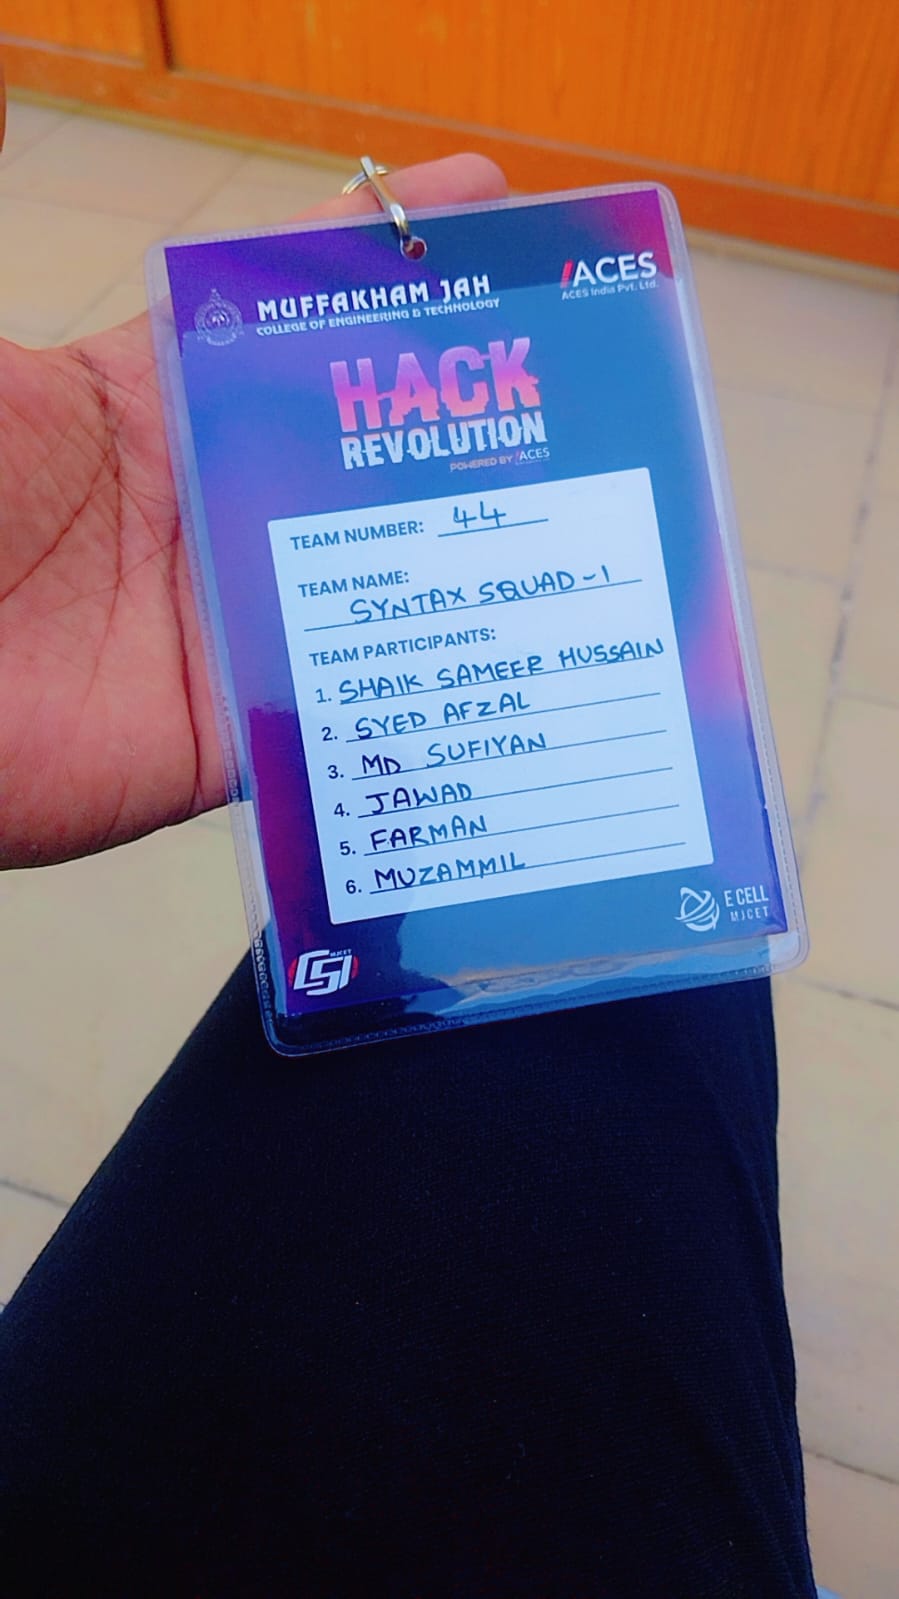 MUFFAKHAM JAH
COLLEGE OF ENGINEERING & TECHNOLOGY
ACES
ACES India Pvt. Ltd.
HACK
REVOLUTION
POWERED BY ACES
TEAM NUMBER: 44
TEAM NAME:
SYNTAX SQUAD-1
TEAM PARTICIPANTS:
1. SHAIK SAMEER HUSSAIN
2. SYED AFZAL
3. MD SUFIYAN
4. JAWAD
5. FARMAN
6. MUZAMMIL
E CELL
MJCET
MJCET
CSI